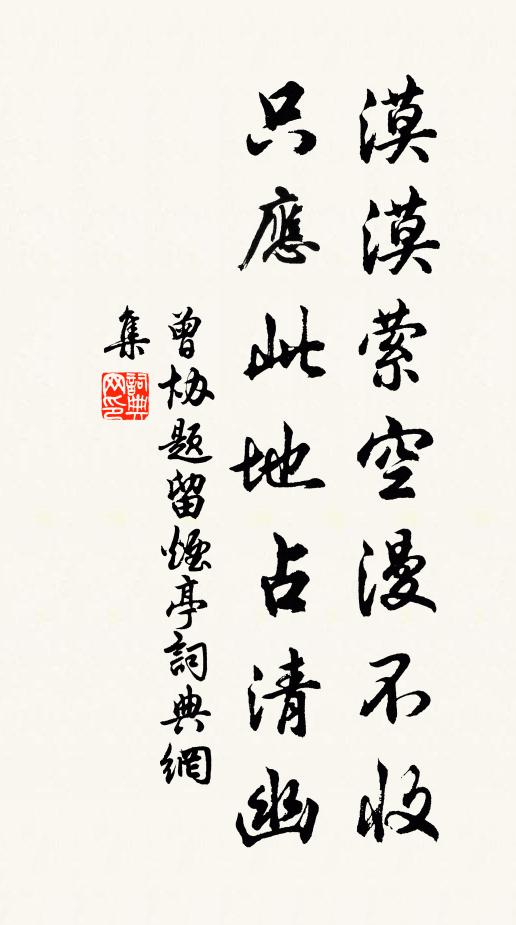 漠漠萦空漫不收
只應此地占清幽
曾协題留煙亭詞典網
集
詞典网印